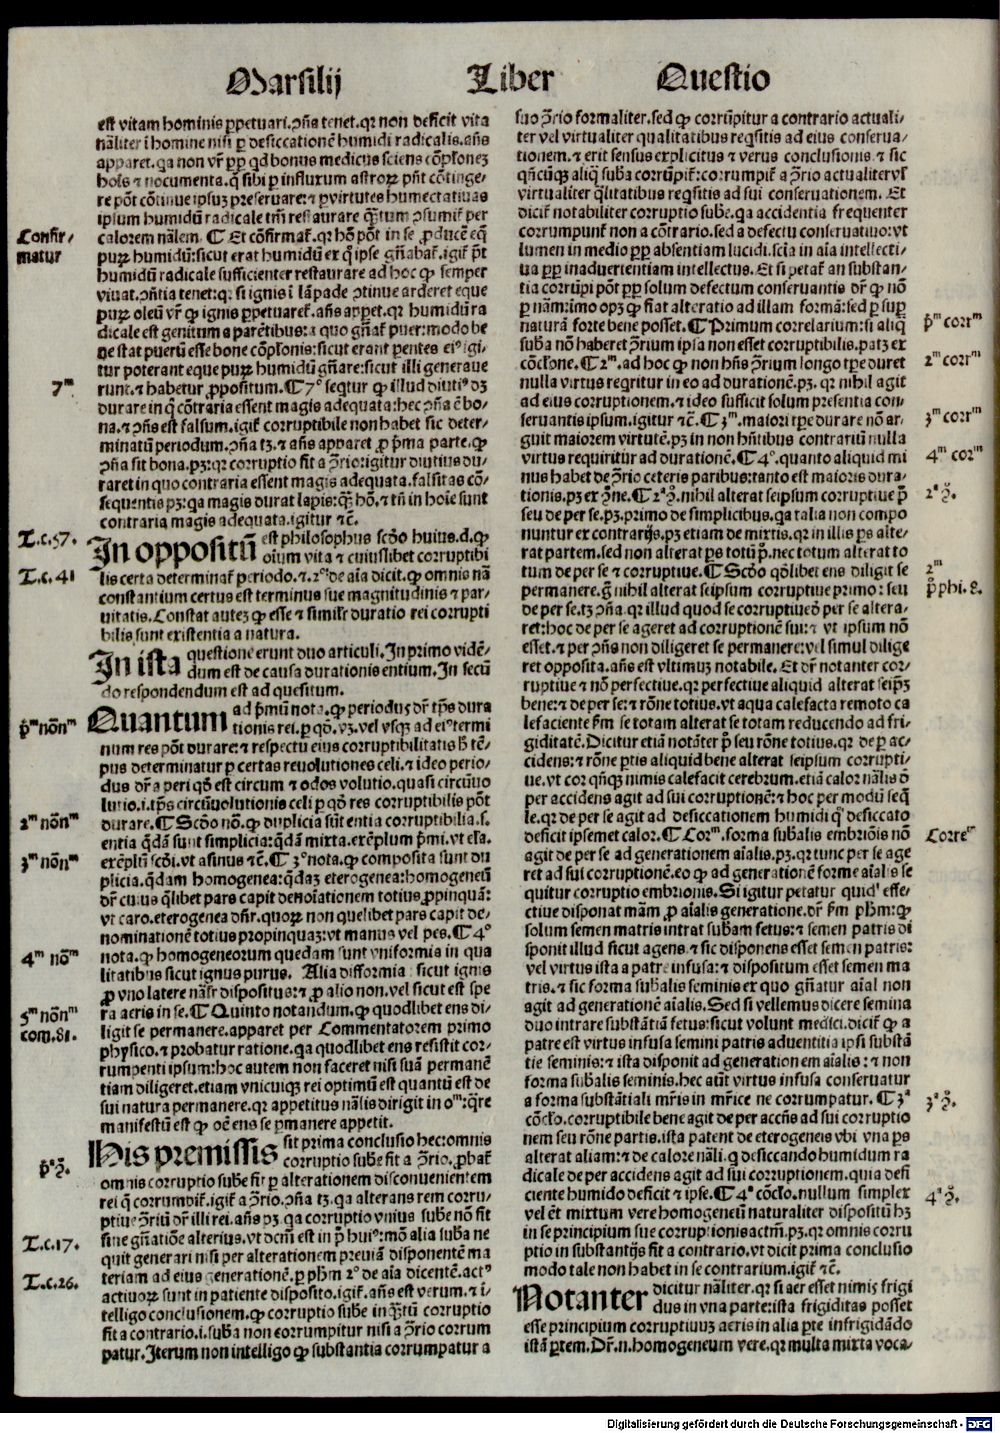 Marsilij Liber Questio
est vitam hominis ꝑpetuari.ↄñs tenet.qꝛ non deficit vita
nãliter ĩ homine nisi ꝑ desiccationẽ humidi radicalis.añs
apparet.qa non vr̃ ꝓp̃ qd bonus medicus sciens cõplõnez
hoĩs ⁊ nocumenta.q̃ sibi ꝑ influxum astroꝝ pñt cõtinge-
re põt cõtinue ipsuꝫ preseruare:⁊ ꝑ virtutes humectatiuas
ipsum humidũ radicale tm̃ restaurare q̃ꝫtum ↄsumit̃ per
Confir/
matur
calorem nãlem. ¶ Et cõfirmat̃.qꝛ hõ põt in se ꝓducẽ eq̃
puꝝ humidũ:sicut erat humidũ ex q̃ ipse gñabat̃.igit̃ p̃t
humidũ radicale sufficienter restaurare ad hoc ꝙ semper
viuat.ↄñtia tenet:qꝛ si ignis ĩ lãpade ↄtinue arderet eque
puꝝ oleũ vr̃ ꝙ ignis ꝑpetuaret̃.añs appet.qꝛ humidũ ra
dicale est genitum a parẽtibus:a quo gñat̃ puer:modo be
ne stat puerũ esse bone cõplõnis:sicut erant ꝑentes eiꝰ igi-
tur poterant eque puꝝ humidũ gñare:sicut illi generaue
7ᵐ
runt.⁊ habetur ꝓpositum. ¶ 7° seqtur ꝙ illud diutiꝰ dꝫ
durare in q̃ cõtraria essent magis adequata:hec ↄña ẽ bo-
na.⁊ ↄñs est falsum.igit̃ corruptibile non habet sic deter-
minatũ periodum.ↄña tꝫ.⁊ añs apparet ꝓ p̃ma parte.ꝙ
ↄña sit bona.pꝫ:qꝛ corruptio fit a ↄ̃rio:igitur diutius du-
raret in quo contraria essent magis adequata.falsitas cõ-
sequentis pꝫ:qa magis durat lapis:q̃ꝫ hõ.⁊ tñ in hoĩe sunt
contraria magis adequata.igitur ⁊c̃.
T.c.57.
In oppositũ est philosophus scðo huius.d.ꝙ
oĩum vita ⁊ cuiuslibet corruptibi
T.c.41
lis certa determinat̃ periodo.⁊.2°:de aĩa dicit.ꝙ omnis nã
constantium certus est terminus sue magnitudinis ⁊ par-
uitatis.Constat autez ꝙ esse ⁊ similr̃ duratio rei corrupti
bilis sunt existentia a natura.
In ista questione erunt duo articuli.In primo vidẽ-
dum est de causa durationis entium.In secũ
do respondendum est ad quesitum.
p̃ᵐ nõnᵐ
Quantum ad p̃mũ nota.ꝙ periodus dr̃ tp̃s dura
tionis rei.ꝑ qõ.vꝫ.vel vsqꝫ ad eiꝰ termi
num res põt durare:⁊ respectu eius corruptibilitatis h̃ tẽ-
pus determinatur ꝑ certas reuolutiones celi.⁊ ideo perio-
dus dr̃ a peri qõ est circum ⁊ odos volutio.quasi circũuo
lutio.i.tp̃s circũuolutionis celi ꝑ qõ res corruptibilis põt
2ᵐ nõnᵐ
durare. ¶ Scðo nõ.ꝙ duplicia sũt entia corruptibilia.s.
entia q̃dã sunt simplicia:q̃dã mixta.exẽplum p̃mi.vt elã.
3ᵐ nõnᵐ
exẽplũ scði.vt asinus ⁊c̃. ¶ 3° nota.ꝙ composita sunt du
plicia.q̃dam homogenea:q̃daꝫ eterogenea:homogeneũ
dr̃ cuius q̃libet pars capit denoĩationem totius ꝓpinquã:
vt caro.eterogenea dñr.quoꝝ non quelibet pars capit de-
nominationẽ totius propinquaꝫ:vt manus vel pes. ¶ 4°
4ᵐ nõᵐ
nota.ꝙ homogeneorum quedam sunt vniformia in qua
litatibus sicut ignus purus. Alia difformia sicut ignis
ꝓ vno latere nãlr̃ dispositus:⁊ ꝓ alio non.vel sicut est spe
5ᵐ nõnᵐ
com.81.
ra aeris in se. ¶ Quinto notandum.ꝙ quodlibet ens di-
ligit se permanere.apparet per Commentatorem primo
physico.⁊ probatur ratione.qa quodlibet ens resistit cor-
rumpenti ipsum:hoc autem non faceret nisi suã permanẽ
tiam diligeret.etiam vnicuiqꝫ rei optimũ est quantũ est de
sui natura permanere.qꝛ appetitus nãlis dirigit in oᵐ:q̃re
manifestũ est ꝙ oẽ ens se ꝑmanere appetit.
p̃ᵃ ↄ̃.
His premissis sit prima conclusio hec:omnis
corruptio sub̃e fit a ↄ̃rio.ꝓbat̃
omnis corruptio sub̃e fit ꝑ alterationem disconuenientem
rei q̃ corrumpit̃.igit̃ a ↄ̃rio.ↄña tꝫ.qa alterans rem corru-
ptiue ↄ̃riũ dr̃ illi rei.añs pꝫ.qa corruptio vnius sub̃e nõ fit
T.c.17.
sine gñatiõe alterius.vt dcm̃ est in p̃ huiꝰ:mõ alia sub̃a ne
quit generari nisi per alterationem preuiã disponentẽ ma
T.c.26.
teriam ad eius generationẽ.ꝑ ph̃m 2° de aĩa dicentẽ.actꝰ
actiuoꝝ sunt in patiente disposito.igit̃.añs est verum.⁊ ĩ-
telligo conclusionem.ꝙ corruptio sub̃e in q̃ꝫtũ corruptio
fit a contrario.i.sub̃a non corrumpitur nisi a ↄ̃rio corrum
patur.Iterum non intelligo ꝙ substantia corrumpatur a
suo ↄ̃rio formaliter.sed ꝙ corrũpitur a contrario actuali-
ter vel virtualiter qualitatibus reqsitis ad eius conserua-
tionem.⁊ erit sensus explicitus ⁊ verus conclusionis ⁊ sic
qñcũqꝫ aliq̃ sub̃a corrũpit̃:corrumpit̃ a ↄ̃rio actualiter vl̃
virtualiter q̃litatibus reqsitis ad sui conseruationem. Et
dicit̃ notabiliter corruptio sub̃e.qa accidentia frequenter
corrumpunt̃ non a cõtrario.sed a defectu conseruatiuo:vt
lumen in medio ꝓp̃ absentiam lucidi.scĩa in aĩa intellecti-
ua ꝓp̃ inaduertentiam intellectus. Et si petat̃ an substan-
tia corrũpi põt ꝓp̃ solum defectum conseruantis dr̃ ꝙ nõ
ꝑ nãm:imo opꝫ ꝙ fiat alteratio ad illam formã:sed ꝑ suꝑ
p̃ᵐ corrᵐ
naturã forte bene posset. ¶ Primum correlarium:si aliq̃
sub̃a nõ haberet ↄ̃rium ipsa non esset corruptibilis.patꝫ ex
2ᵐ corrᵐ
cõclõne. ¶ 2ᵐ.ad hoc ꝙ non hñs ↄ̃rium longo tp̃e duret
nulla virtus reqritur in eo ad durationẽ.pꝫ.qꝛ nihil agit
ad eius corruptionem.⁊ ideo sufficit solum presentia con-
3ᵐ corrᵐ
seruantis ipsum.igitur ⁊c̃. ¶ 3ᵐ.maiori tp̃e durare nõ ar-
guit maiorem virtutẽ.pꝫ in non hñtibus contrariũ nulla
4ᵐ corᵐ
virtus requiritur ad durationẽ. ¶ 4°.quanto aliquid mi
nus habet de ↄ̃rio ceteris paribus:tanto est maioris dura-
2ᵃ ↄ̃.
tionis.pꝫ ex ↄ̃ne. ¶ 2ᵃ ↄ̃.nihil alterat seipsum corruptiue p̃
seu de per se.pꝫ.primo de simplicibus.qa talia non compo
nuntur ex contrarijs.pꝫ etiam de mixtis.qꝛ in illis ps alte-
rat partem.sed non alterat ps totũ p̃.nec totum alterat to
2ᵐ
tum de per se ⁊ corruptiue. ¶ Scðo qõlibet ens diligit se
p̃ phi.8.
permanere.g̃ nihil alterat seipsum corruptiue primo: seu
de per se.tꝫ ↄña.qꝛ illud quod se corruptiueõ per se altera-
ret:hoc de per se ageret ad corruptionẽ sui:⁊ vt ipsum nõ
esset.⁊ per ↄñs non diligeret se permanere:vel simul dilige
ret opposita.añs est vltimuꝫ notabile. Et dr̃ notanter cor-
ruptiue ⁊ nõ perfectiue.qꝛ perfectiue aliquid alterat seip̃ꝫ
bene:⁊ de per se:⁊ rõne totius.vt aqua calefacta remoto ca
lefaciente p̃m se totam alterat se totam reducendo ad fri-
giditatẽ.Dicitur etiã notãter p̃ seu rõne totius.qꝛ de ꝑ ac-
cidens:⁊ rõne ꝑtis aliquid bene alterat seipsum corrupti-
ue.vt cor qñqꝫ nimis calefacit cerebrum.etiã calor nãlis õ
per accidens agit ad sui corruptionẽ:⁊ hoc per modũ seq̃
le.qꝛ de per se agit ad desiccationem humidi q̃ desiccato
Correᵐ
deficit ipsemet calor. ¶ Corᵐ.forma sub̃alis embriõis nõ
agit de per se ad generationem aĩalis.pꝫ.qꝛ tunc per se age
ret ad sui corruptionẽ.eo ꝙ ad generationẽ forme aĩalis se
quitur corruptio embrionis.Si igitur petatur quid effe-
ctiue disponat mãm ꝓ aĩalis generatione.dr̃ p̃m ph̃m:ꝙ
solum semen matris intrat sub̃am fetus:⁊ semen patris di
sponit illud sicut agens.⁊ sic disponens esset semen patris:
vel virtus ista a patre infusa:⁊ dispositum esset semen ma
tris.⁊ sic forma sub̃alis seminis ex quo gñatur aĩal non
agit ad generationẽ aĩalis.Sed si vellemus dicere semina
duo intrare substãtiã fetus:sicut volunt medici.dicit̃ ꝙ a
patre est virtus infusa semini patris aduentitia ipsi substã
tie seminis:⁊ ista disponit ad generationem aĩalis:⁊ non
forma sub̃alis seminis.hec aũt virtus infusa conseruatur
3ᵃ ↄ̃.
a forma substãtiali mr̃is in mr̃ice ne corrumpatur. ¶ 3ᵃ
cõclõ.corruptibile bene agit de per accñs ad sui corruptio
nem seu rõne partis.ista patent de eterogeneis vbi vna ps
alterat aliam:⁊ de calore nãli.q desiccando humidum ra
dicale de per accidens agit ad sui corruptionem.quia defi
4ᵃ ↄ̃.
ciente humido deficit ⁊ ipse. ¶ 4ᵃ cõclõ.nullum simplex
vel ẽt mixtum vere homogeneũ naturaliter dispositũ hꝫ
in se principium sue corruptionis actm̃.pꝫ.qꝛ omnis corru
ptio in substantijs fit a contrario.vt dicit prima conclusio
modo tale non habet in se contrarium.igit̃ ⁊c̃.
Notanter dicitur nãliter.qꝛ si aer esset nimis frigi
dus in vna parte:ista frigiditas posset
esse principium corruptiuuꝫ aeris in alia ꝑte infrigidãdo
istã ꝑtem.Dr̃.n.homogeneum vere.qꝛ multa mixta voca-
Digitalisierung gefördert durch die Deutsche Forschungsgemeinschaft - DFG